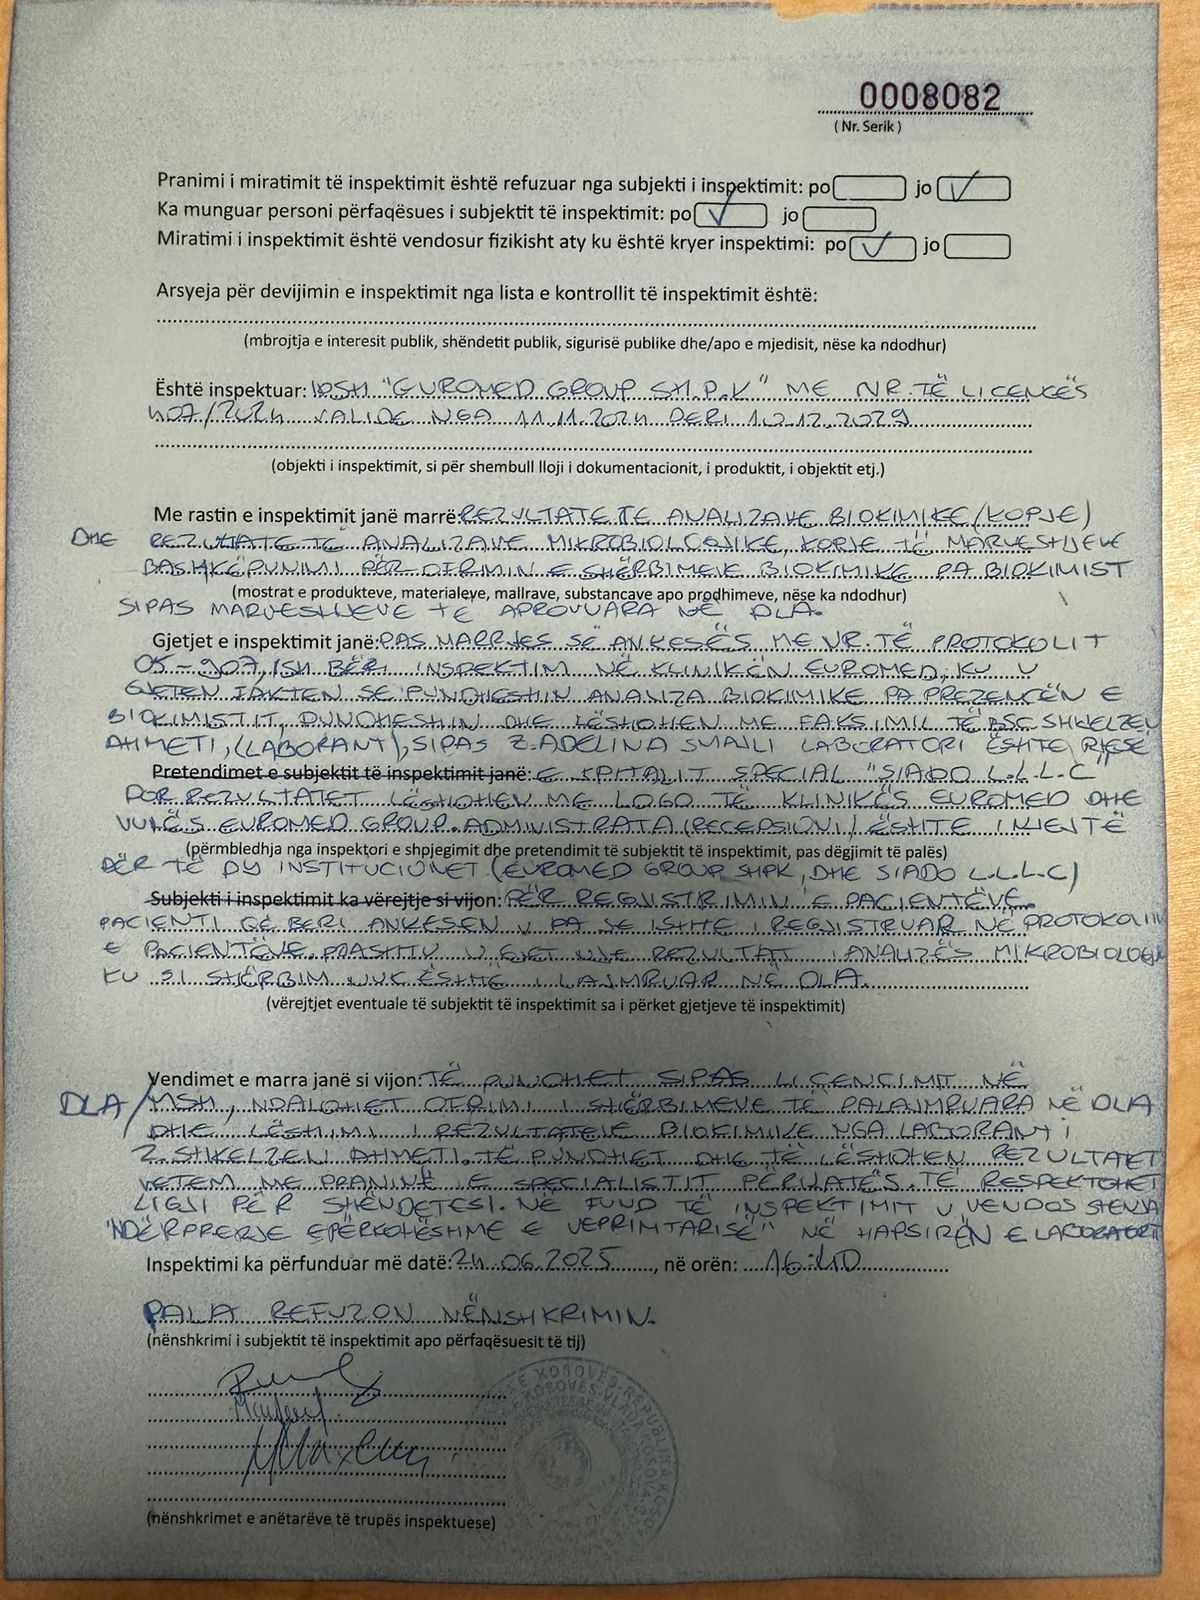 0008082
( Nr. Serik )
Pranimi i miratimit të inspektimit është refuzuar nga subjekti i inspektimit: po jo ✓
Ka munguar personi përfaqësues i subjektit të inspektimit: po ✓ jo
Miratimi i inspektimit është vendosur fizikisht aty ku është kryer inspektimi: po ✓ jo
Arsyeja për devijimin e inspektimit nga lista e kontrollit të inspektimit është:
(mbrojtja e interesit publik, shëndetit publik, sigurisë publike dhe/apo e mjedisit, nëse ka ndodhur)
Është inspektuar: IPSH "EUROMED GROUP SH.P.K" ME NR. TË LICENCËS
407/2024 VALIDE NGA 11.11.2024 DERI 10.12.2029
(objekti i inspektimit, si për shembull lloji i dokumentacionit, i produktit, i objektit etj.)
Me rastin e inspektimit janë marrë: REZULTATE TE ANALIZAVE BIOKIMIKE (KOPJE)
DHE REZULTATE TË ANALIZAVE MIKROBIOLOGJIKE, KOPJE TË MARVESHJEVE
BASHKËPUNIMI PËR OFRIMIN E SHËRBIMEVE BIOKIMIKE PA BIOKIMIST
(mostrat e produkteve, materialeve, mallrave, substancave apo prodhimeve, nëse ka ndodhur)
SIPAS MARVESHJEVE TE APROVUARA NË DLA.
Gjetjet e inspektimit janë: PAS MARRJES SË ANKESËS ME NR. TË PROTOKOLIT
05-907, ISH BËRI INSPEKTIM NË KLINIKËN EUROMED, KU U
GJETEN FAKTEN SE PUNOHESHIN ANALIZA BIOKIMIKE PA PREZENCËN E
BIOKIMISTIT, PUNOHESHIN DHE LËSHOHEN ME FAKSIMIL TË BSC. SHKELZEN
AHMETI, (LABORANT), SIPAS Z. ADELINA SMAJLI LABORATORI ËSHTË PJESË
Pretendimet e subjektit të inspektimit janë: E SPITALIT SPECIAL "SIADO L.L.C"
POR REZULTATET LËSHOHEN ME LOGO TË KLINIKËS EUROMED DHE
VULËS EUROMED GROUP. ADMINISTRATA (RECEPSIONI) ËSHTE I NJEJTË
(përmbledhja nga inspektori e shpjegimit dhe pretendimit të subjektit të inspektimit, pas dëgjimit të palës)
PËR TË DY INSTITUCIONET (EUROMED GROUP SHPK, DHE SIADO L.L.C)
Subjekti i inspektimit ka vërejtje si vijon: PËR REGJISTRIMIN E PACIENTËVE.
PACIENTI QË BERI ANKESEN U PA SE ISHTE I REGJISTRUAR NË PROTOKOLIN
E PACIENTËVE. PRASHTU U GJET NJE REZULTAT I ANALIZËS MIKROBIOLOGJIKE
KU SI SHËRBIM NUK ËSHTË I LAJMRUAR NË DLA.
(vërejtjet eventuale të subjektit të inspektimit sa i përket gjetjeve të inspektimit)
Vendimet e marra janë si vijon: TË PUNOHET SIPAS LICENCIMIT NË
DLA/MSH, NDALOHET OFRIMI I SHËRBIMEVE TË PALAJMRUARA NË DLA
DHE LËSHIMI I REZULTATEVE BIOKIMIKE NGA LABORANTI
Z. SHKELZEN AHMETI. TË PUNOHET DHE TË LËSHOHEN REZULTATET
VETEM ME PRANINË E SPECIALISTIT PËRKATËS. TË RESPEKTOHET
LIGJI PËR SHËNDETESI. NË FUND TË INSPEKTIMIT U VENDOS SHENJA
"NDËRPRERJE E PËRKOHËSHME E VEPRIMTARISË" NË HAPSIRËN E LABORATORIT
Inspektimi ka përfunduar më datë: 24.06.2025, në orën: 16:40
PALA REFUZON NËNSHKRIMIN.
(nënshkrimi i subjektit të inspektimit apo përfaqësuesit të tij)
(nënshkrimet e anëtarëve të trupës inspektuese)